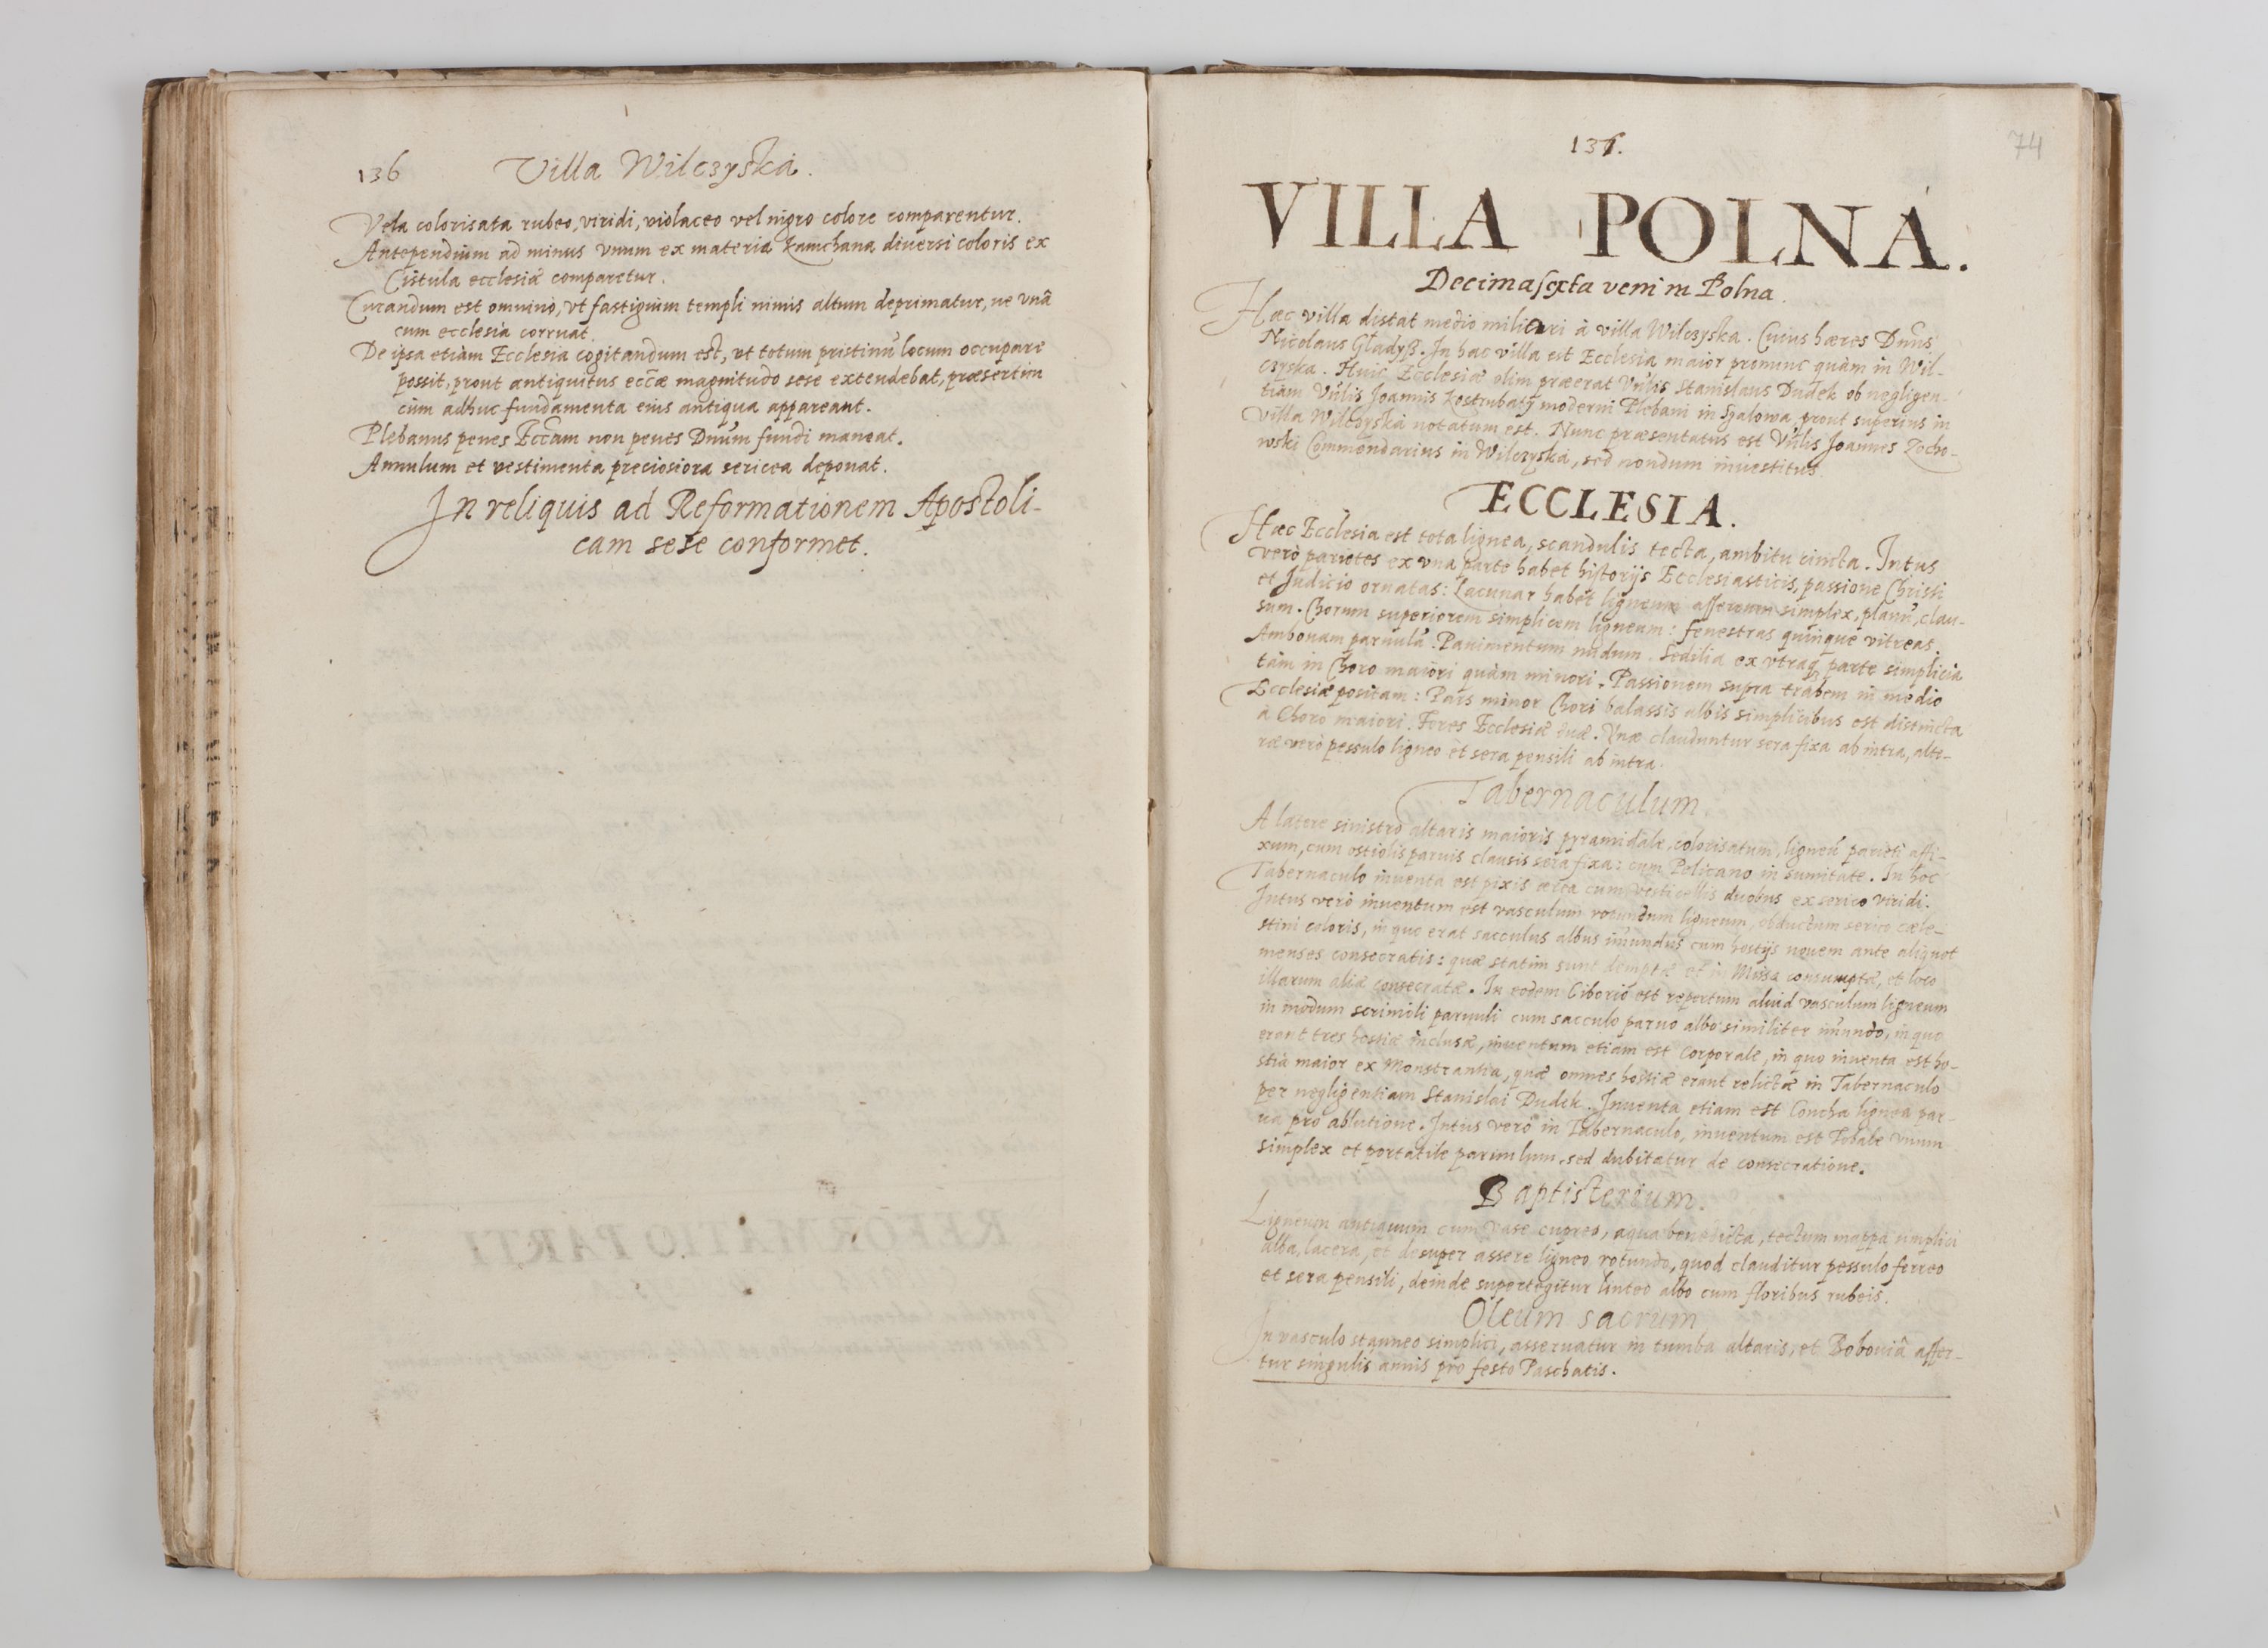 136 Villa Wilczyska.
Vela colorisata rubeo, viridi, violaceo vel nigro colore comparentur.
Antependium ad minus vnum ex materia kamchana diuersi coloris ex
Cistula ecclesiæ comparetur.
Curandum est omninò, vt fastigium templi nimis altum deprimatur, ne vnâ
cum ecclesia corruat.
De ipsa etiàm Ecclesia cogitandum est, ut totum pristinũ locum occupare
possit, prout antiquitus eccæ magnitudo sese extendebat, præsertim
cùm adhuc fundamenta eius antiqua appareant.
Plebanus penes Eccam non penes Dnum fundi maneat.
Annulum et vestimenta preciosiora sericea deponat.
In reliquis ad Reformationem Apostoli-
cam sese conformet.
137.
74
VILLA POLNA.
Decimasexta veni in Polna.
Hæc villa distat medio miliari à villa Wilczyska. Cuius hæres Dnus
Nicolaus Gladyß. In hac villa est Ecclesia maior pronunc quàm in Wil-
czyska. Huic Ecclesiæ olim præerat Vnlis Stanislaus Dudek ob negligen-
tiam Vnlis Joannis moderni Plebani in prout superius in
villa Wilczyska notatum est. Nunc præsentatus est Vnlis Joannes Zocho-
wski Commendarius in Wilczyska, sed nondum inuestitus.
ECCLESIA.
Hæc Ecclesia est tota lignea, scandulis tecta, ambitu cincta. Intus
verò parietes ex vna parte habet historijs Ecclesiasticis, passione Christi
et Judicio ornatas: Lacunar habet ligneum asserum simplex, planũ, clau-
sum. Chorum superiorem simplicem ligneam: fenestras quinque vitreas.
Ambonam paruulã. Pauimentum nudum. Sedilia ex vtraq parte simplicia
tàm in Choro maiori quàm minori. Passionem supra trabem in medio
Ecclesiæ positam: Pars minor Chori balassis albis simplicibus est distincta
à Choro maiori. Fores Ecclesiæ duæ. Vnæ clauduntur sera fixa ab intra, alte-
ræ verò pessulo ligneo et sera pensili ab intra.
Tabernaculum.
A latere sinistro altaris maioris pyramidale, colorisatum, ligneũ parieti affi-
xum, cum ostiolis paruis clausis sera fixa: cum Pelicano in sumitate. In hoc
Tabernaculo inuenta est pixis ærea cum vesticellis duobus ex serico viridi.
Intus verò inuentum est vasculum rotundum ligneum, obductum serico cæle-
stini coloris, in quo erat sacculus albus imundus cum hostijs nouem ante aliquot
menses consecratis: quæ statim sunt demptæ et in Missa consumptæ, et loco
illarum aliæ consecratæ. In eodem Ciborio est repertum aliud vasculum ligneum
in modum scrinioli paruuli cum sacculo paruo albo similiter imundo, in quo
erant tres hostiæ inclusæ, inuentum etiam est Corporale, in quo inuenta est ho-
stia maior ex Monstrantia, quæ omnes hostiæ erant relictæ in Tabernaculo
per negligentiam Stanislai Dudek. Inuenta etiam est Concha lignea par-
ua pro ablutione. Intus verò in Tabernaculo, inuentum est Tobale vnum
simplex et portatile paruulum, sed dubitatur de consecratione.
Baptisterium.
Ligneum antiquum cum vase cupreo, aqua benedicta, tectum mappa simplici
alba, lacera, et desuper assere ligneo rotundo, quod clauditur pessulo ferreo
et sera pensili, deinde supertegitur linteo albo cum floribus rubeis.
Oleum sacrum
In vasculo stanneo simplici, asseruatur in tumba altaris, et Boboviâ affer-
tur singulis annis pro festo Paschatis.